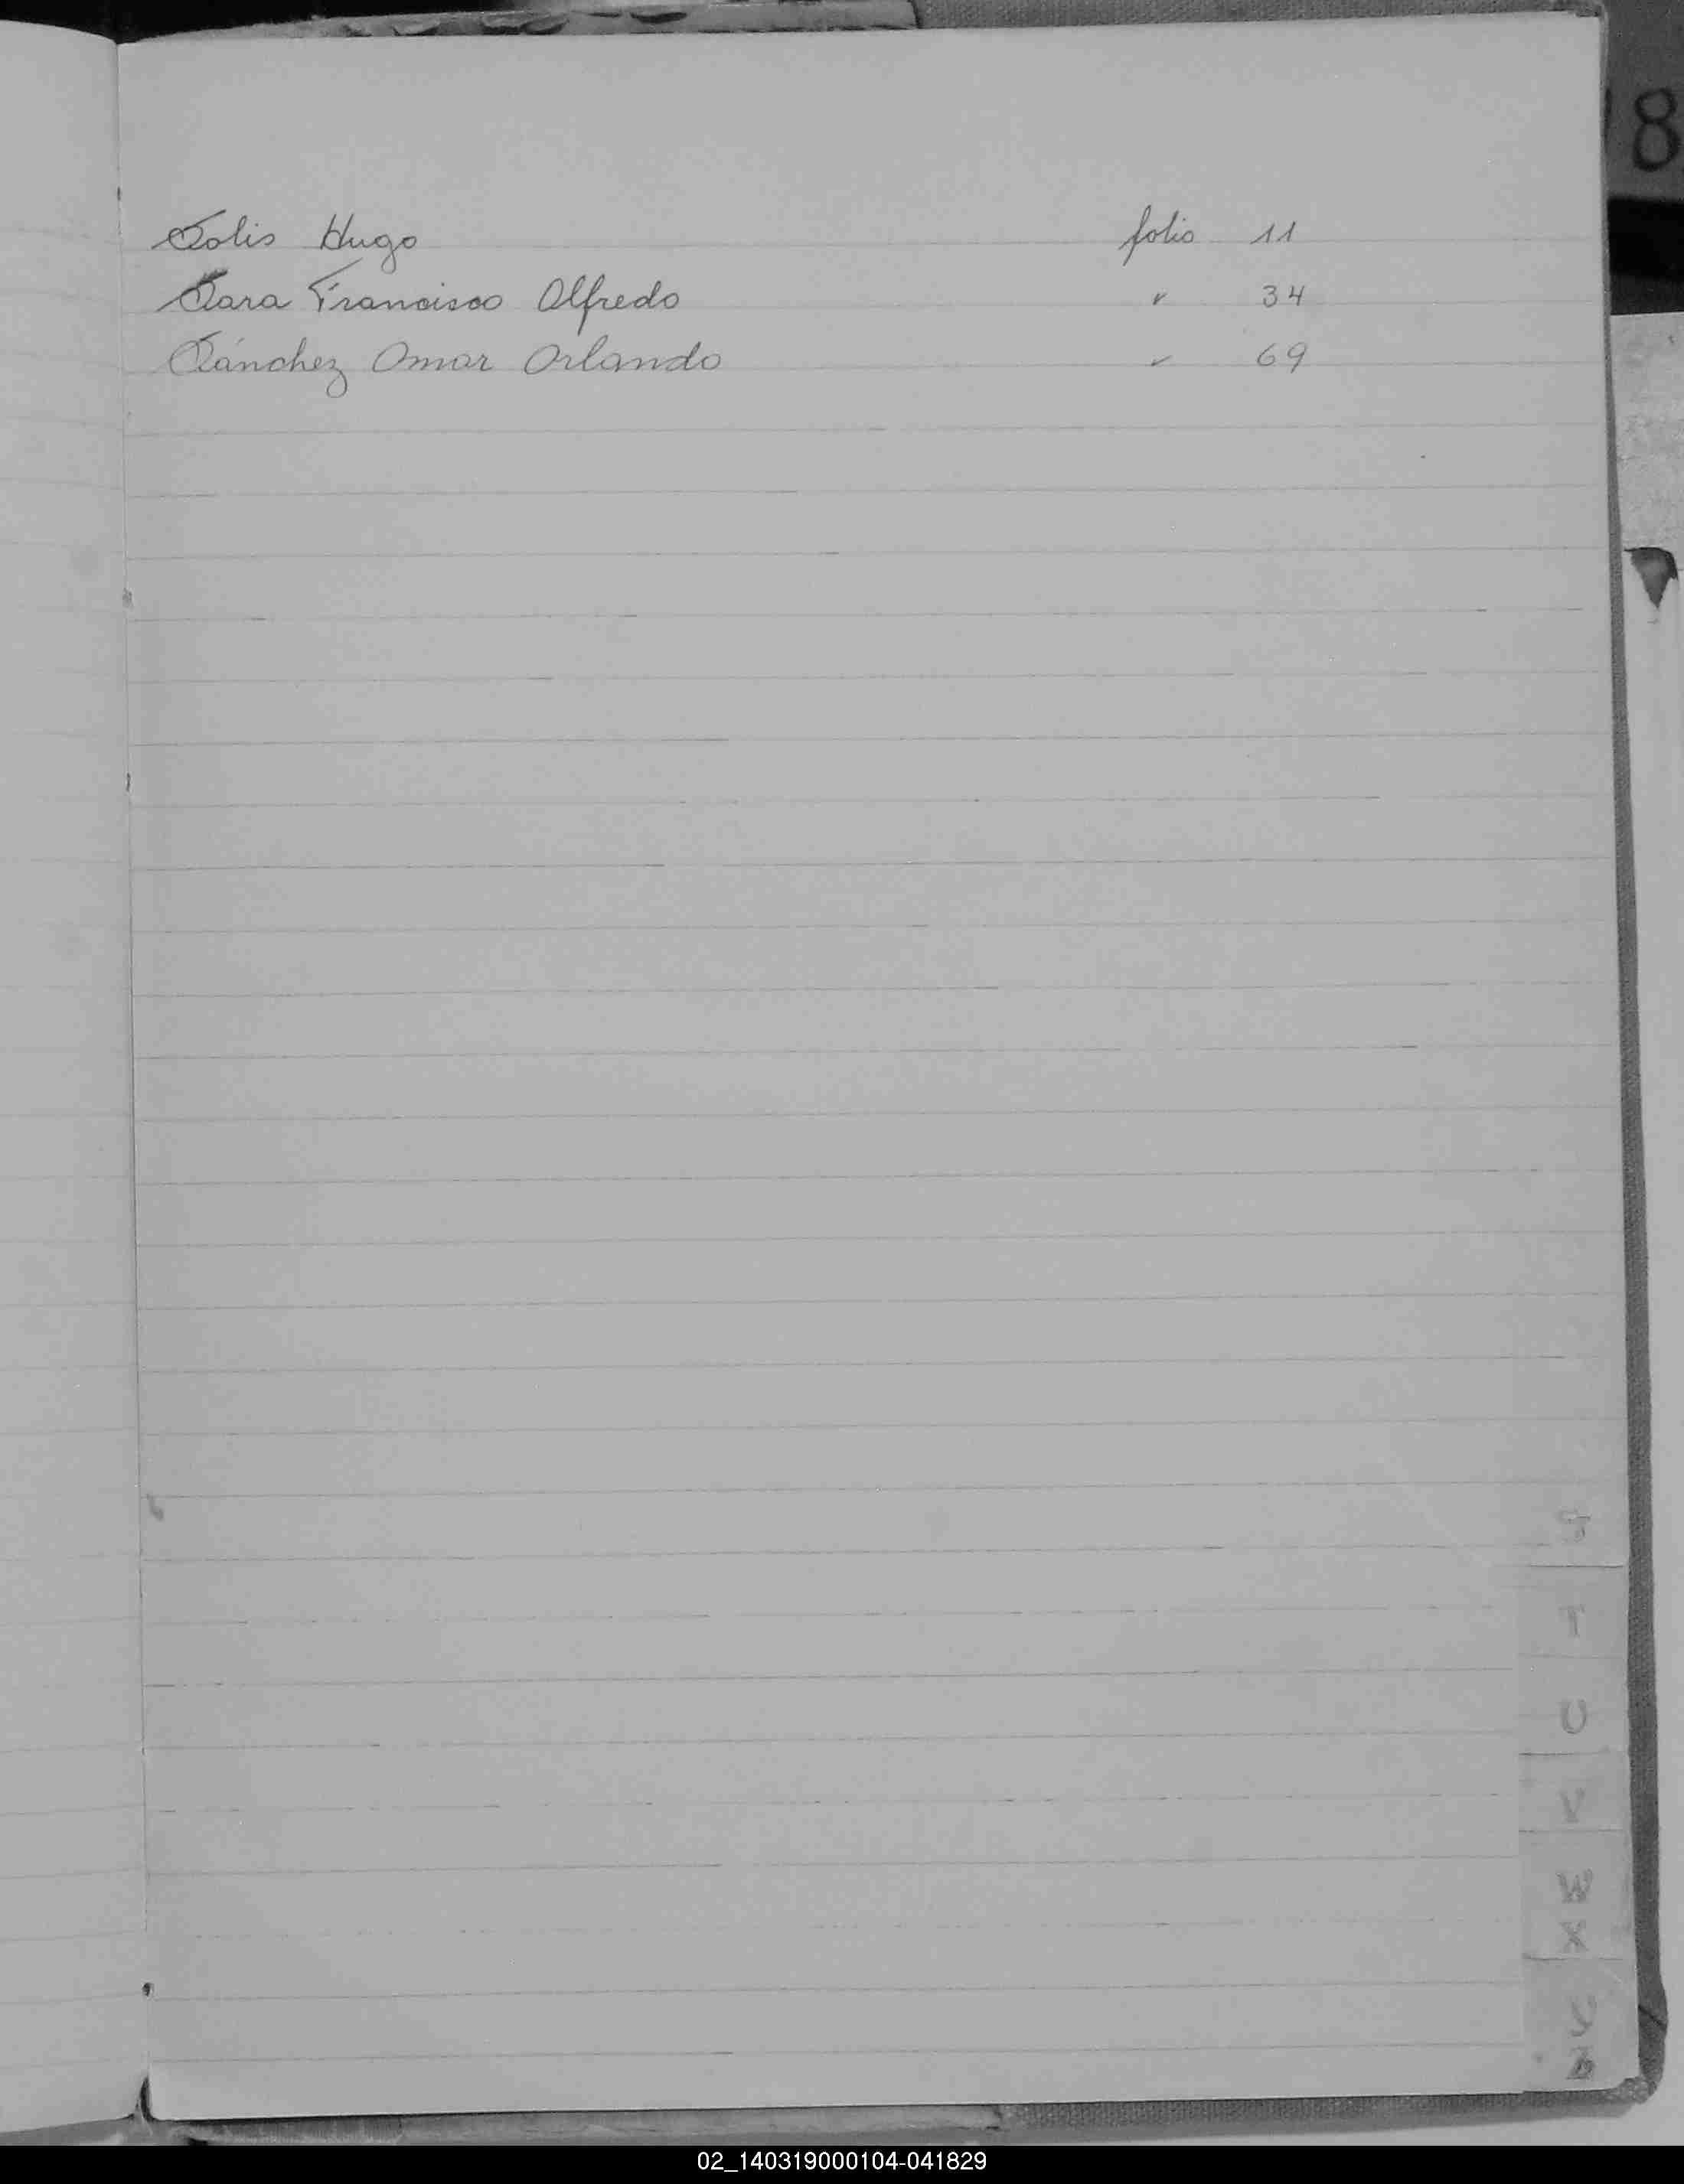 8
Solis Hugo folio 11
Sara Francisco Alfredo " 34
Sánchez Omar Orlando " 69
S
T
U
V
W
X
Y
Z
02_140319000104-041829